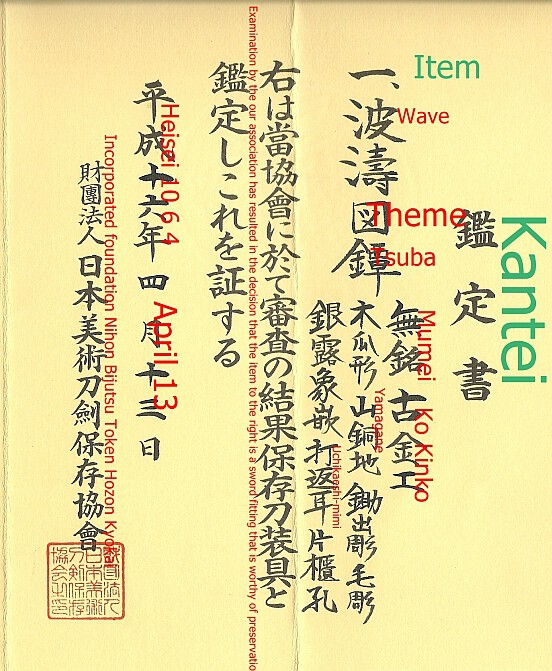 Kantei
鑑定書
Item
一、波濤図鐔
Wave
Theme
Tsuba
無銘 古金工
Mumei Ko Kinko
木瓜形 山銅地 鋤出彫毛彫
Yamagane
銀露象嵌 打返耳 片櫃孔
Uchikaeshi-mimi
右は當協會に於て審査の結果保存刀装具と
鑑定しこれを証する
Examination by the our association has resulted in the decision that the item to the right is a sword fitting that is worthy of preservatio
平成十六年四月十三日
Heisei 10 6 4 April 13
財團法人 日本美術刀劍保存協會
Incorporated foundation Nihon Bijutsu Token Hozon Kyokai